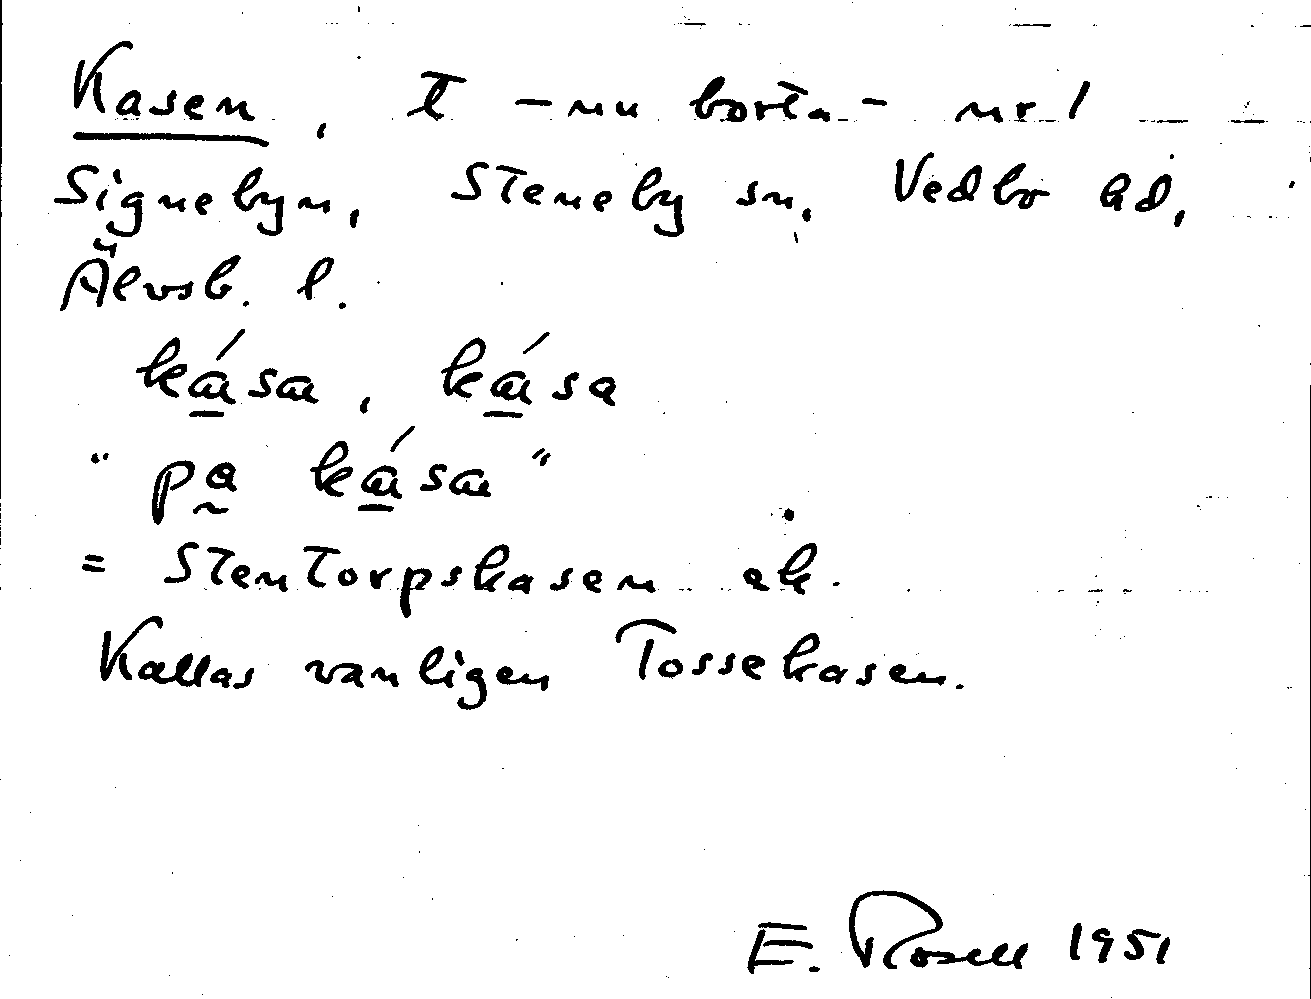 Kasen, t - nu borta - nr 1
Signebyn, Steneby sn, Vedbo hd,
Älvsb. l.
ká̱sa, ká̱sa
"pa̰ ká̱sa"
= Stentorpskasen ek.
Kallas vanligen Tossekasen.
E. Rosell 1951